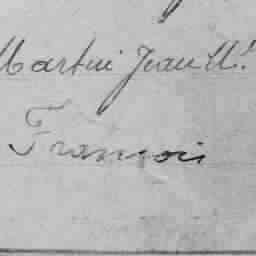 Martin Jean M.
François